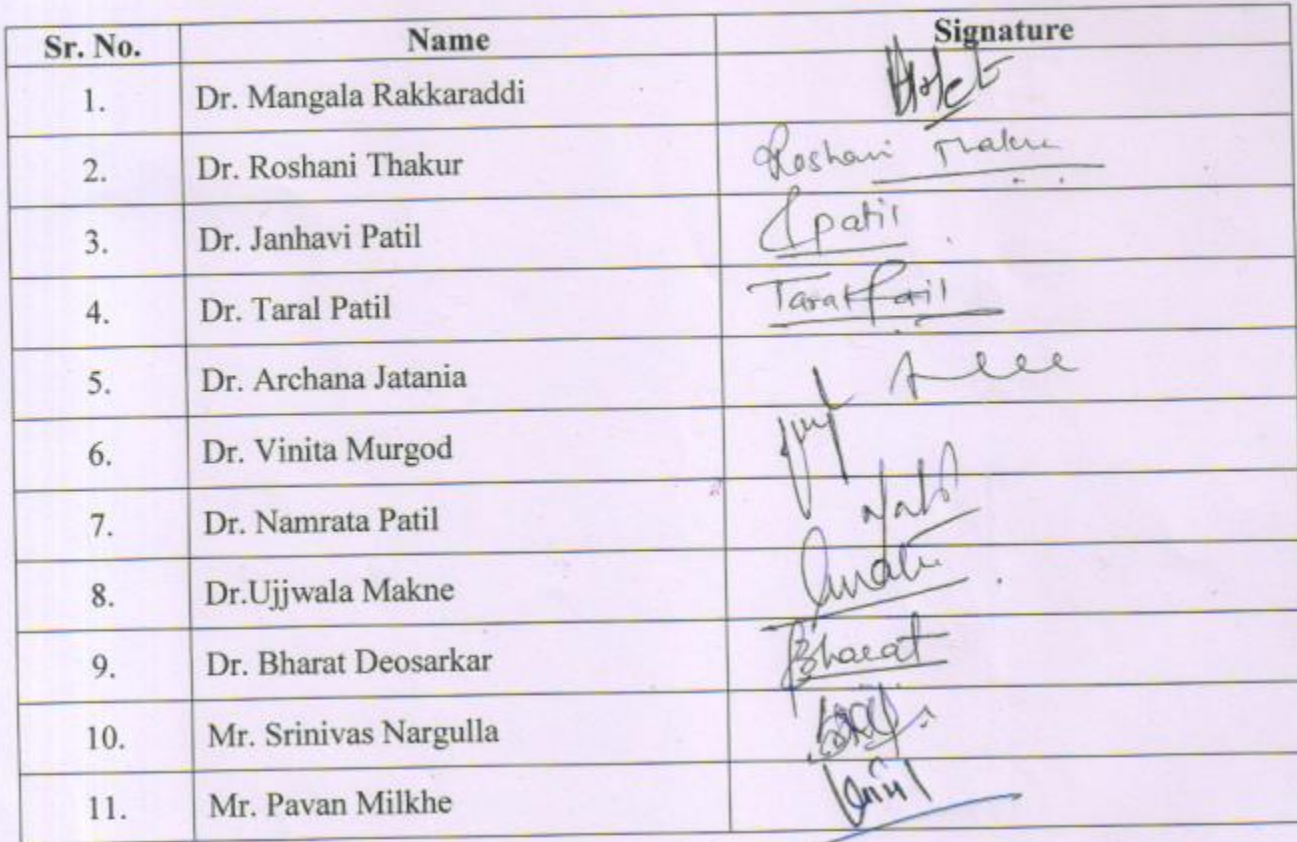 Sr. No. Name Signature
1. Dr. Mangala Rakkaraddi
2. Dr. Roshani Thakur Roshani Thakur
3. Dr. Janhavi Patil Patil
4. Dr. Taral Patil Taral Patil
5. Dr. Archana Jatania
6. Dr. Vinita Murgod
7. Dr. Namrata Patil
8. Dr.Ujjwala Makne
9. Dr. Bharat Deosarkar Bharat
10. Mr. Srinivas Nargulla
11. Mr. Pavan Milkhe